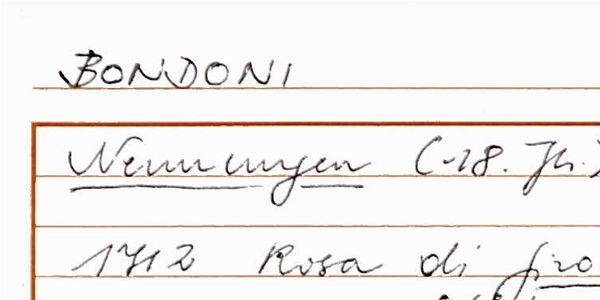 BONDONI
Nennungen (-18. Jh.)
1712 Rosa di